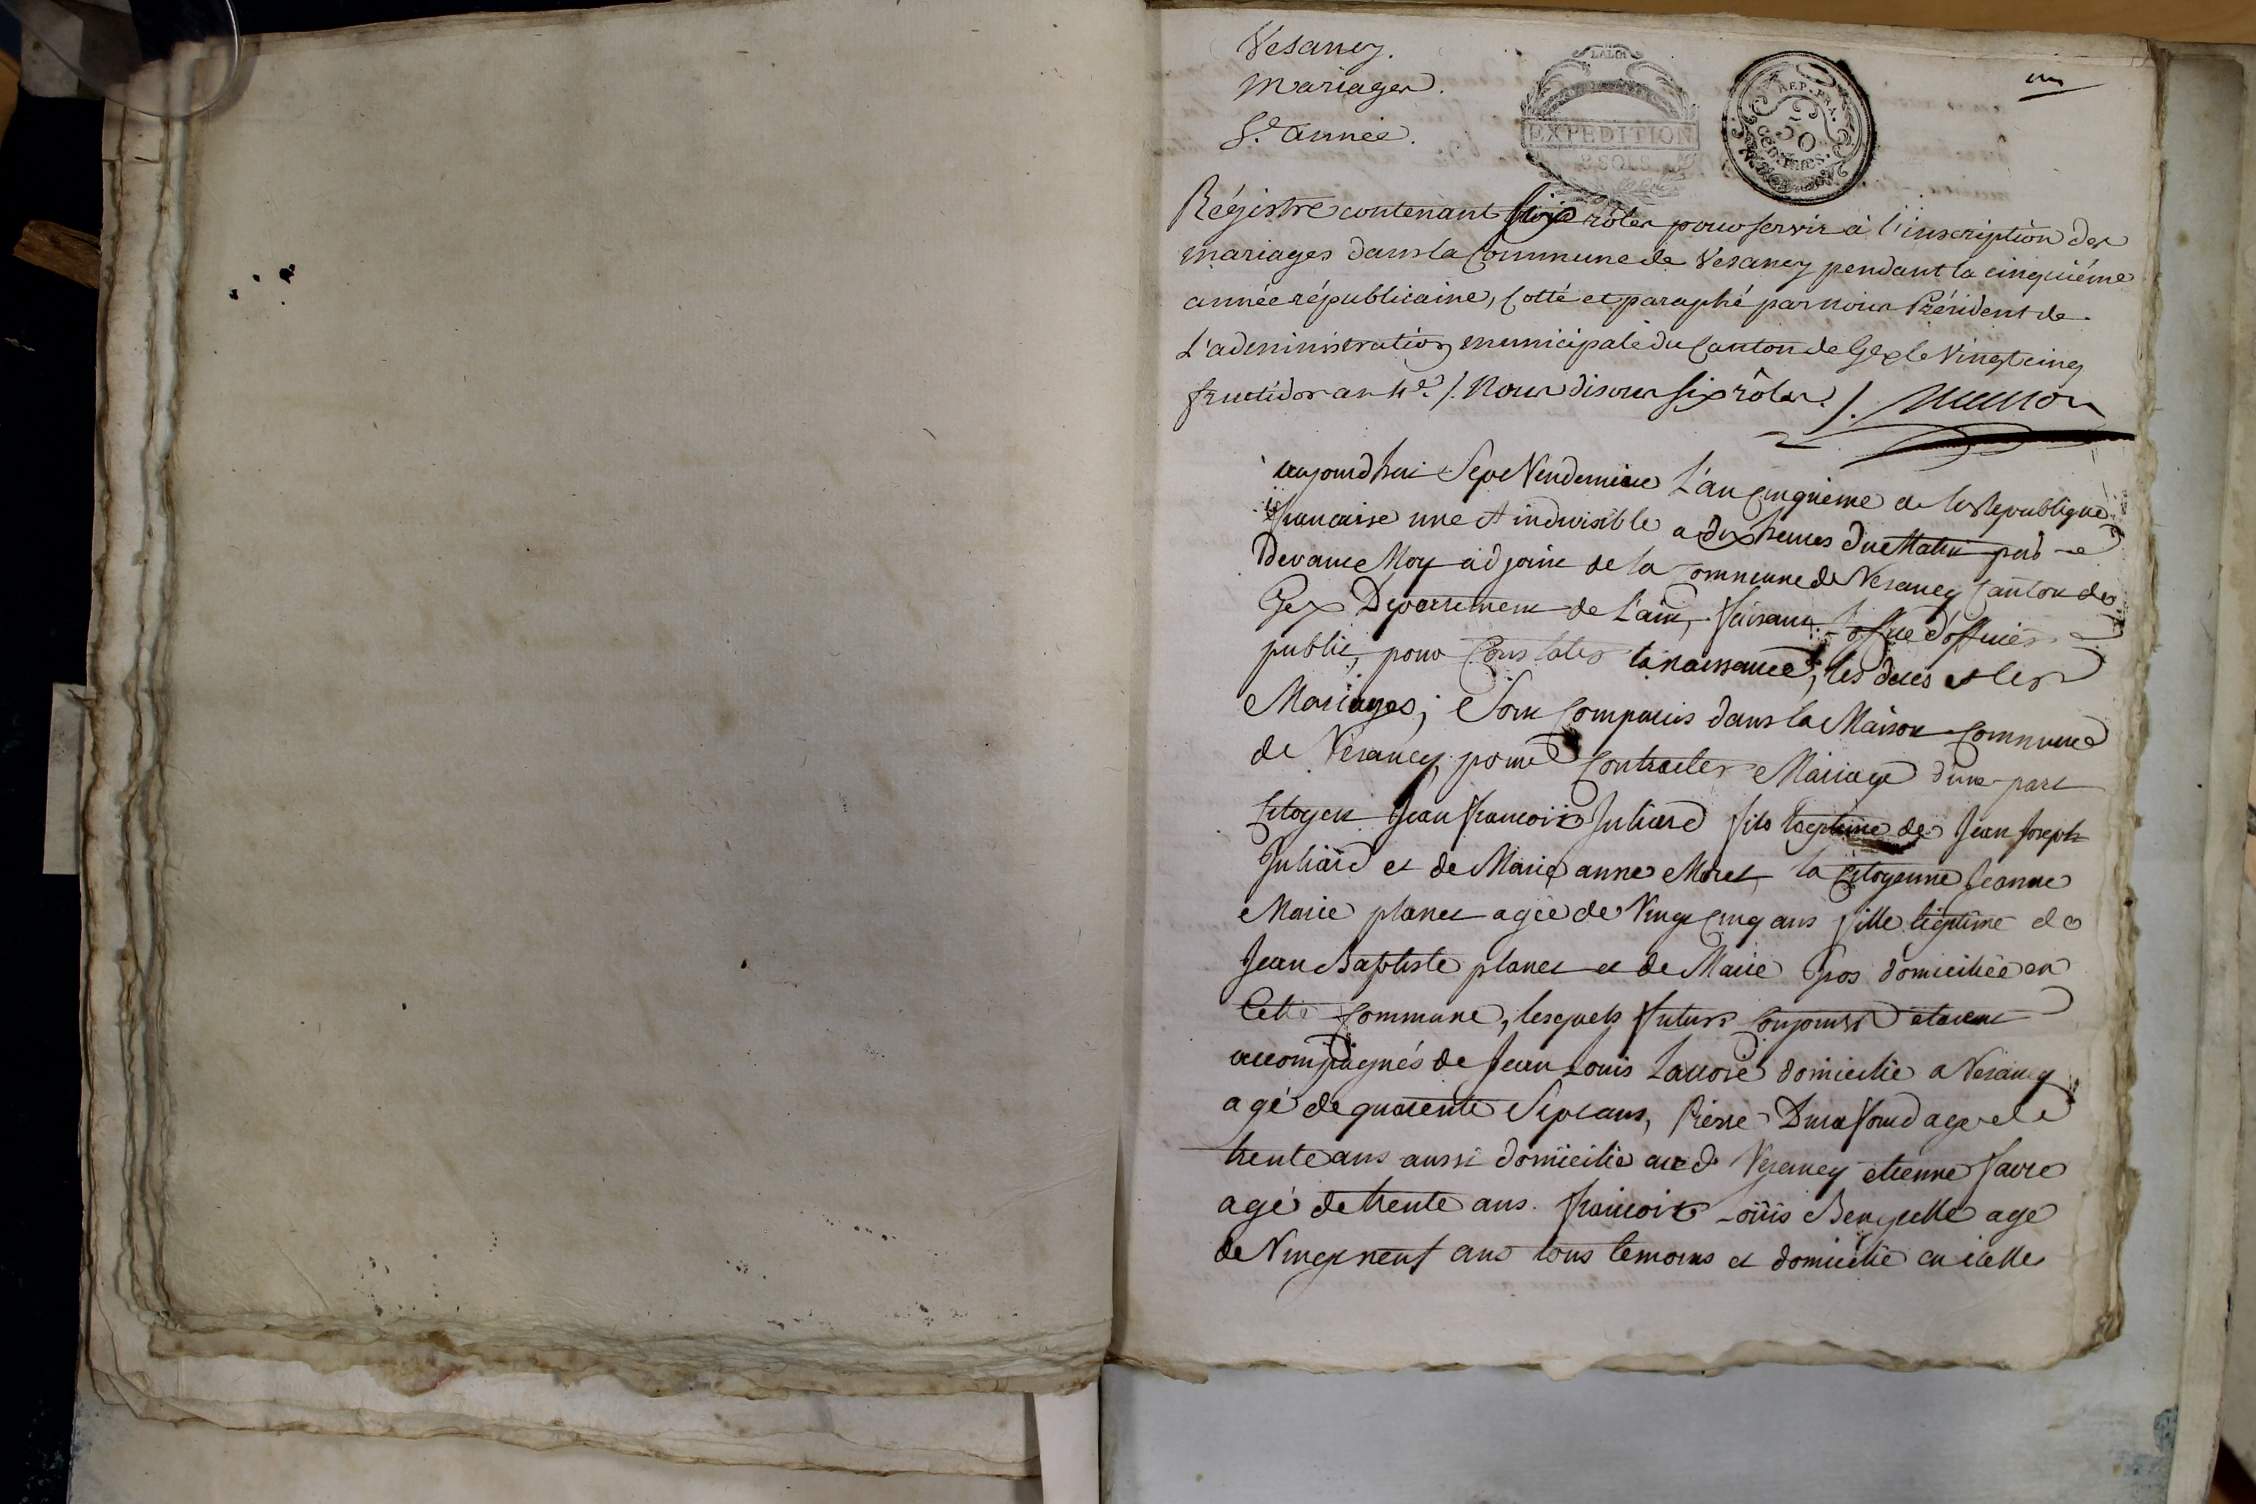 Vesancy.
Mariages.
5.e année.
L'AIN
EXPEDITION
2 SOLS
REP. FRA.
50
CENTIMES.
un
Régistre contenant six rôles pour servir à l'inscription des
mariages dans la Commune de Vesancy pendant la cinquiéme
année républicaine, Cotté et paraphé par nous Président de
L'administration municipale du Canton de Gex le Vingt cinq
fructidor an 4.e /. Nous disons six rôles. /.
aujourdhui Sept Vendemiaire L'an Cinquieme de la Republique
francaise une et indivisible a dix heures du Matin par
Devant Moy adjoint de la Commune de Vesancy Canton de
Gex Departement de L'ain, faisant L'office d'officier
public, pour Constater la naissance, les deces et les
Mariages; Sont Comparus dans la Maison Commune
de Vesancy pour Contracter Mariage d'une part
Citoyen Jean francois Juliard fils legitime de Jean Joseph
Juliard et de Marie anne Moret la Citoyenne Jeanne
Marie planet agée de Vingt Cinq ans fille légitime de
Jean Baptiste planet et de Marie Gros domiciliée en
Cette Commune, lesquels futurs Conjoints étoient
accompagnés de Jean Louis Lavoré domicilie a Vesancy
agé de quarente Sept ans, Pierre Durafourd age de
trente ans aussi domicilie aud. Vesancy etienne favre
agé de trente ans. francois Loüis Benguelle age
de Vingt neuf ans tous temoins et domicilie en icelle